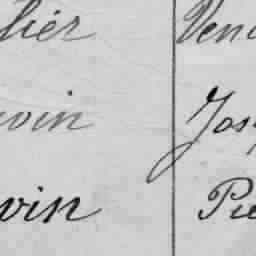 lier Ven
vin Jos
vin Pie